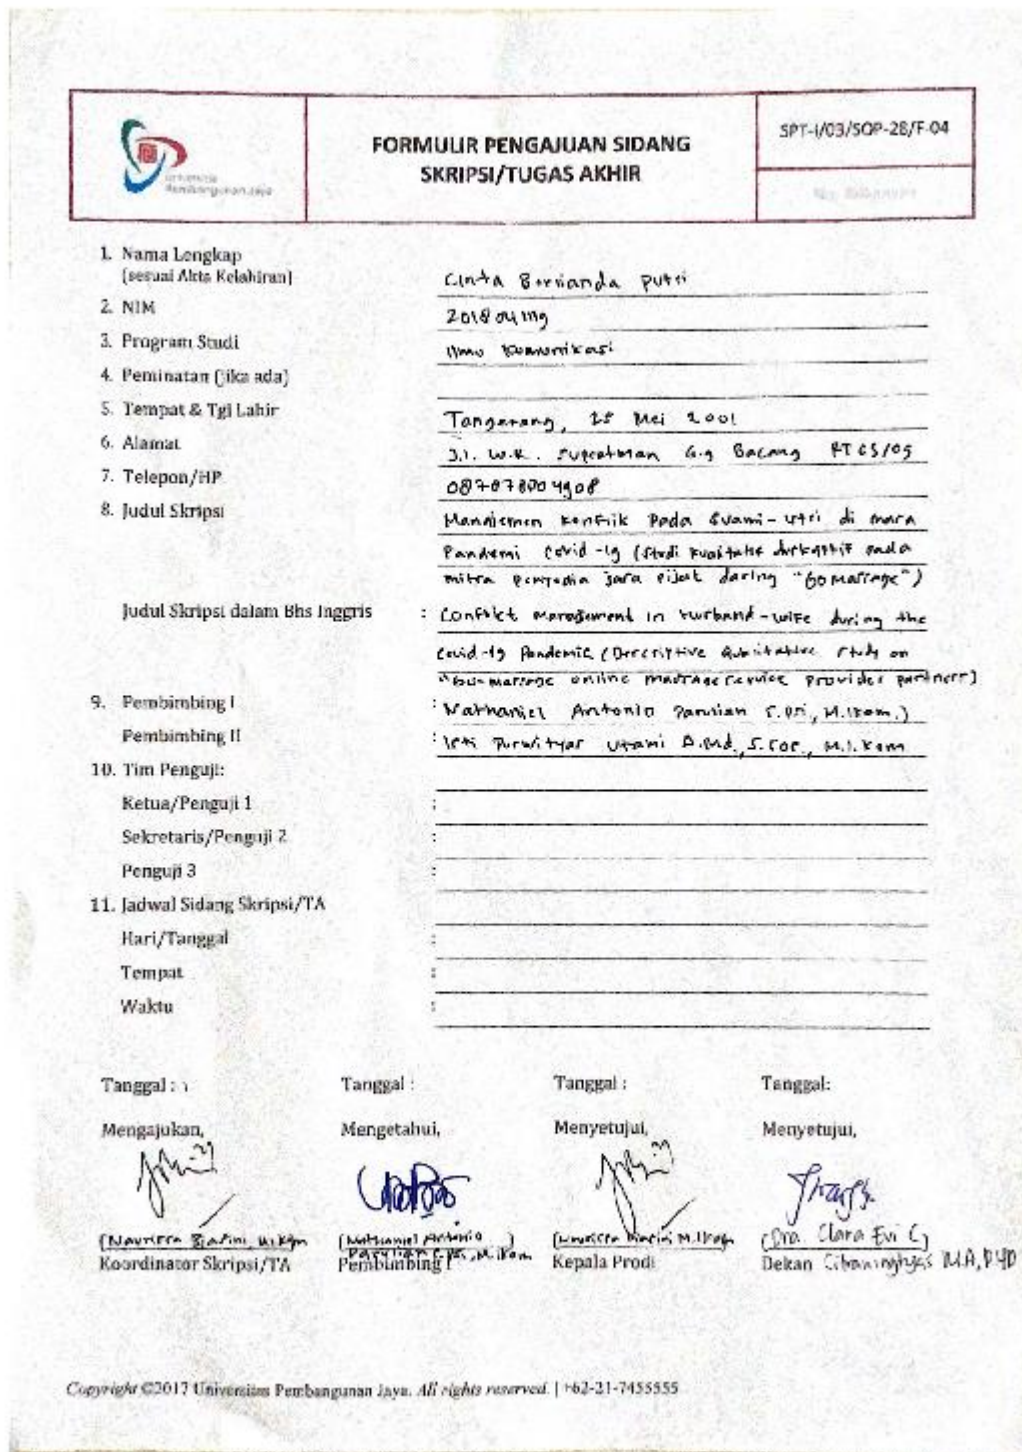 Universitas
Pembangunan Jaya
FORMULIR PENGAJUAN SIDANG
SKRIPSI/TUGAS AKHIR
SPT-I/03/SOP-28/F-04
1. Nama Lengkap
(sesuai Akta Kelahiran)
Cinta Putri
2. NIM
3. Program Studi
Ilmu Komunikasi
4. Peminatan (jika ada)
5. Tempat & Tgl Lahir
Tangerang, 25 Mei 2001
6. Alamat
Jl. W.R. Supratman G.g Bacang RT 05/05
7. Telepon/HP
8. Judul Skripsi
Manajemen Konflik Pada Suami-istri di masa
Pandemi Covid-19 (Studi kualitatif deskriptif pada
mitra penyedia jasa pijat daring "Go Massage")
Judul Skripsi dalam Bhs Inggris : Conflict management in husband-wife during the
Covid-19 Pandemic (Descriptive Qualitative study on
"Go-massage online massage service provider partners)
9. Pembimbing I : Nathaniel Antonio Parulian S.Psi., M.Ikom.)
Pembimbing II : Isti Purwityas Utami A.Md., S.Sos., M.I.Kom
10. Tim Penguji:
Ketua/Penguji 1 :
Sekretaris/Penguji 2 :
Penguji 3 :
11. Jadwal Sidang Skripsi/TA
Hari/Tanggal :
Tempat :
Waktu :
Tanggal : Tanggal : Tanggal : Tanggal:
Mengajukan, Mengetahui, Menyetujui, Menyetujui,
(Naurissa Biasini, M.Ikom (Nathaniel Antonio ) (Naurissa Biasini M.Ikom (Dra. Clara Evi C)
Parulian S.Psi., M.Ikom
Koordinator Skripsi/TA Pembimbing I Kepala Prodi Dekan Citraningtyas M.A, PhD
Copyright ©2017 Universitas Pembangunan Jaya. All rights reserved. | +62-21-7455555